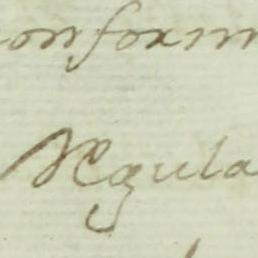 conform
Regula